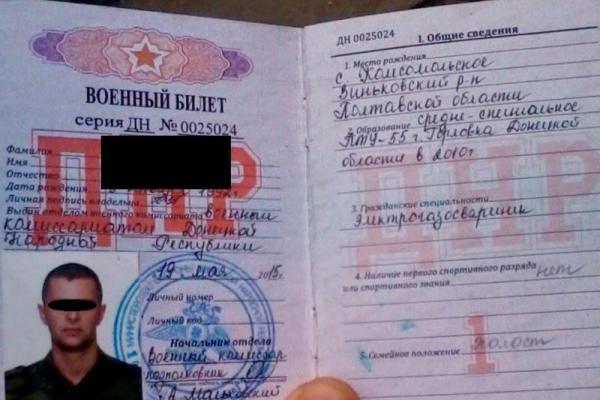 ВОЕННЫЙ БИЛЕТ
серия ДН № 0025024
Фамилия
Имя
Отчество
Дата рождения
Личная подпись владельца
Выдан отделом военного комиссариата военным
комиссариатом Донецкой
Народной Республики
19 мая 2015г.
Личный номер
Личный код
Начальник отдела
военный комиссар
подполковник
ДНР
ДН 0025024
I. Общие сведения
1. Место рождения
с. Комсомольское
Виньковский р-н
Полтавской области
2. Образование средне-специальное
ПТУ-55 г. Горловка Донецкой
области в 2010г
3. Гражданские специальности
Электрогазосварщик
4. Наличие первого спортивного разряда нет
или спортивного звания
5. Семейное положение холост
ДНР
1